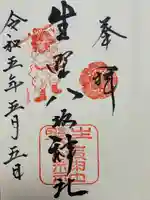 奉拝
生野八坂神社
令和五年五月五日